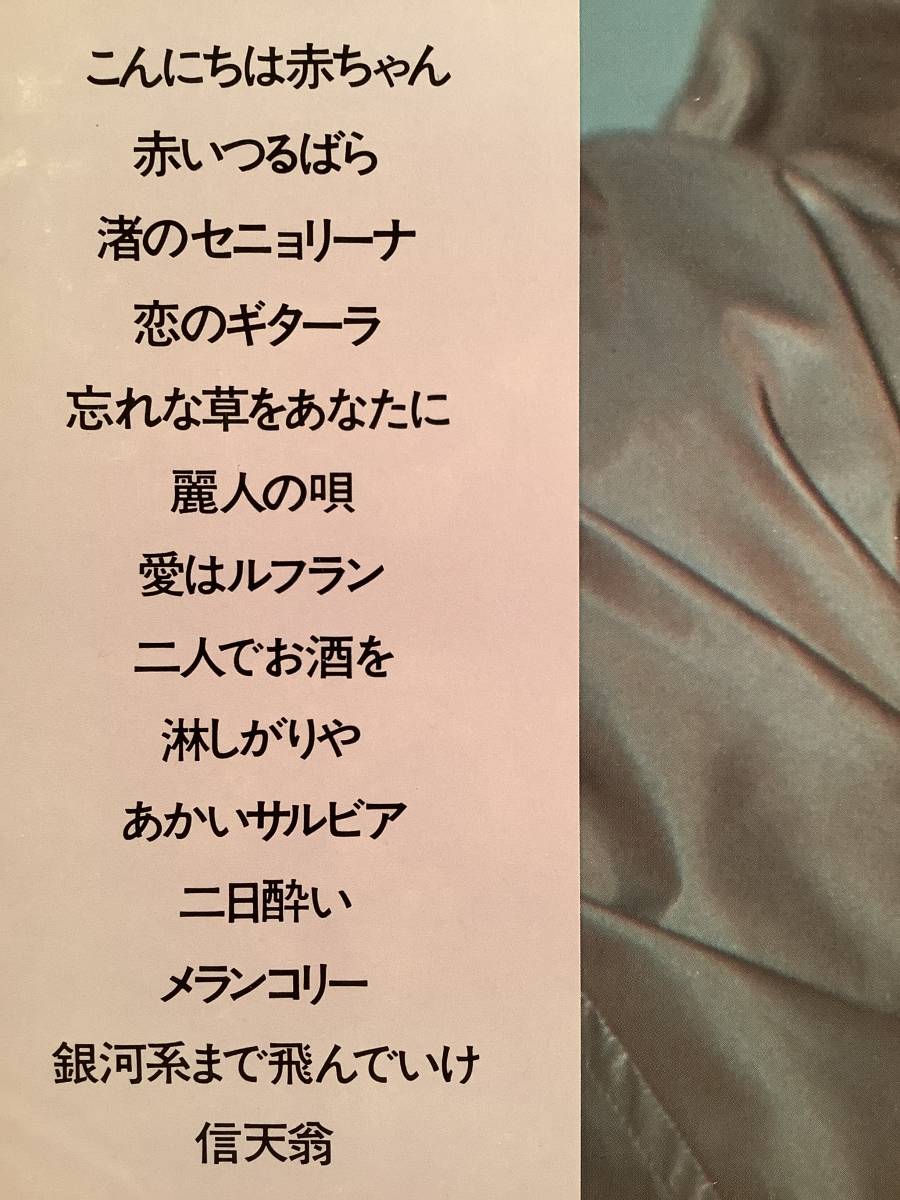 こんにちは赤ちゃん
赤いつるばら
渚のセニョリーナ
恋のギターラ
忘れな草をあなたに
麗人の唄
愛はルフラン
二人でお酒を
淋しがりや
あかいサルビア
二日酔い
メランコリー
銀河系まで飛んでいけ
信天翁